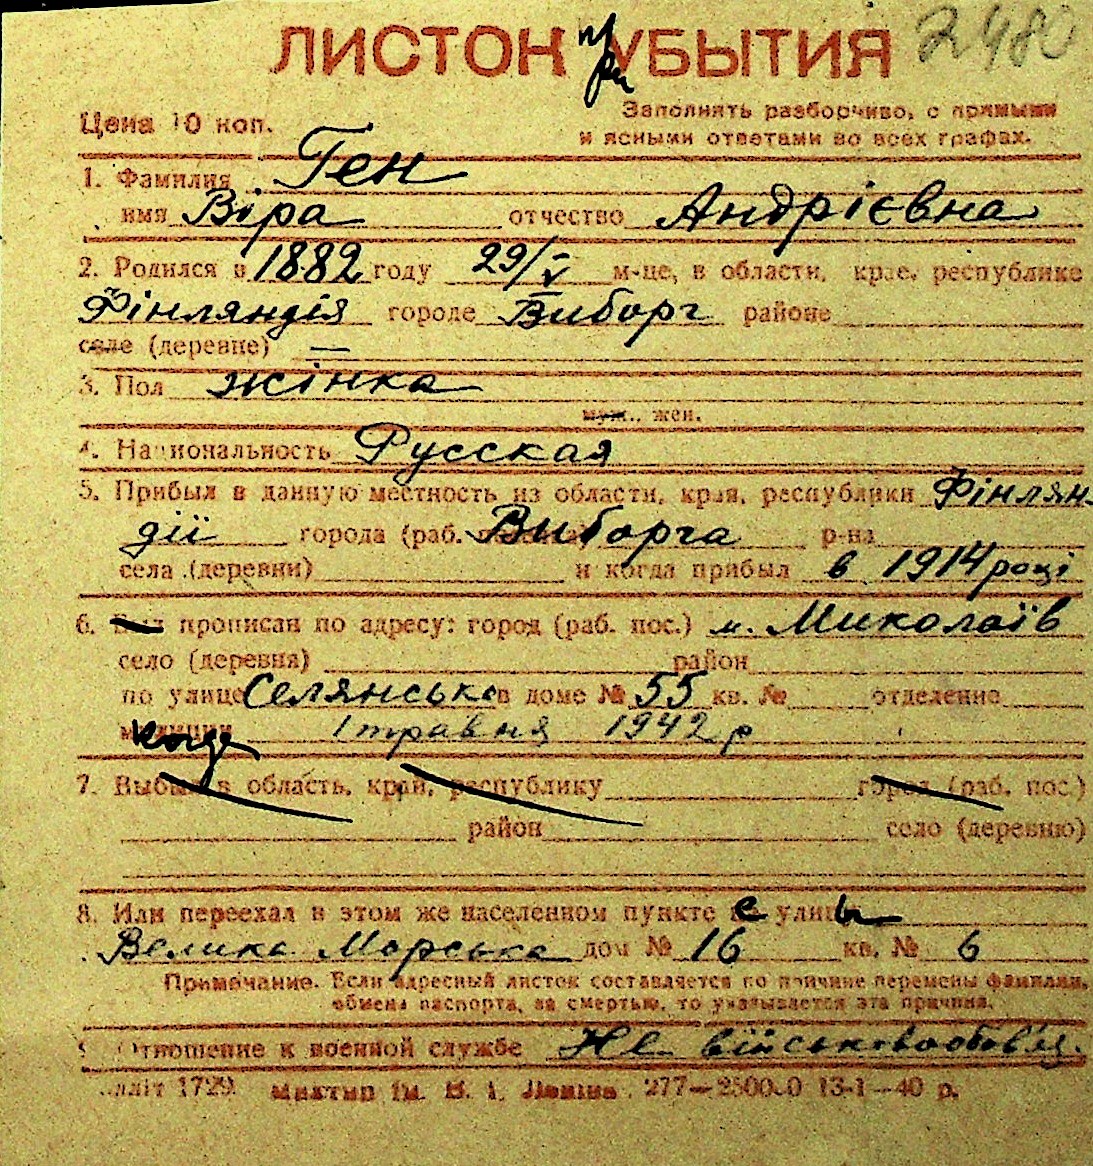 ЛИСТОК при УБЫТИЯ 2480
Цена 10 коп. Заполнять разборчиво, с прямыми
и ясными ответами во всех графах.
1. Фамилия Ген
имя Віра отчество Андрієвна
2. Родился в 1882 году 29/V м-це, в области, крае, республике
Фінляндія городе Виборг районе
селе (деревне) —
3. Пол жінка
муж., жен.
4. Национальность Русская
5. Прибыл в данную местность из области, края, республики Фінлян-
дії города (раб. Виборга р-на
села (деревни) и когда прибыл в 1914 році
6. Был прописан по адресу: город (раб. пос.) м. Миколаїв
село (деревня) район
по улице Селянська в доме № 55 кв. № отделение
милиции 1 травня 1942 р
7. Выбыл в область, край, республику город (раб. пос.)
район село (деревню)
8. Или переехал в этом же населенном пункте с улицы
Велика Морська дом № 16 кв. № 6
Примечание. Если адресный листок составляется по причине перемены фамилии,
обмена паспорта, за смертью, то указывается эта причина.
9. Отношение к военной службе Не військовообов'яз.
1729. 277— 13-1—40 р.